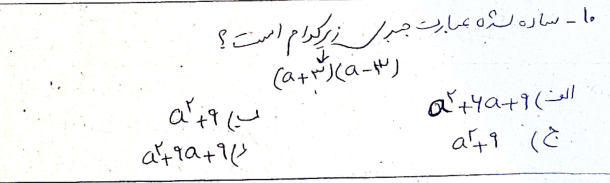 ۱۰- ساده شده عبارت جبری زیر کدام است؟
(a+۳)(a-۳)
الف) a²+۶a+۹ ب) a²+۹
ج) a²+۹ د) a²+۹a+۹